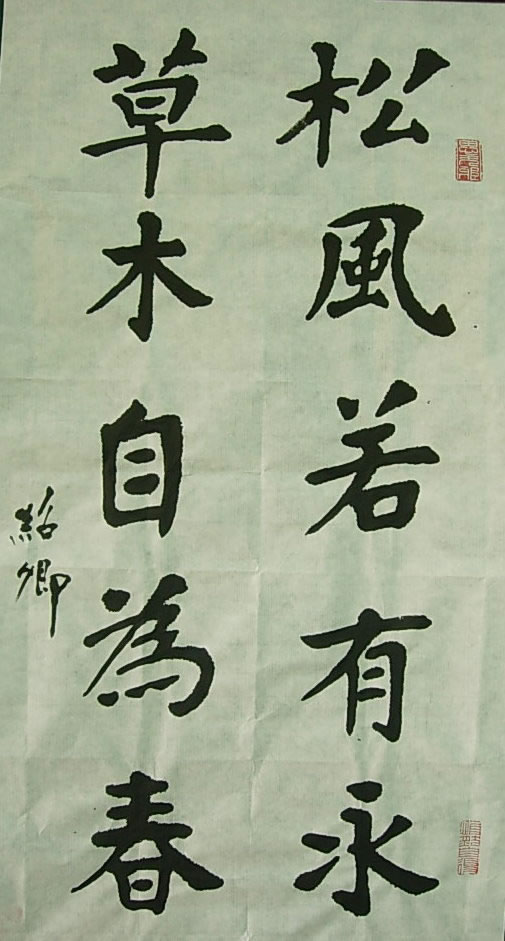 松風若有永
草木自為春
紹卿